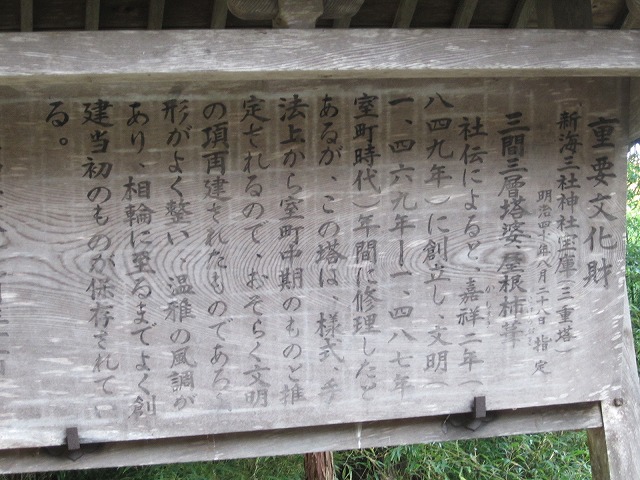 重要文化財
新海三社神社宝庫(三重塔)
明治四 年八月二十八日指定
三間三層塔婆、屋根柿葺
社伝によると、嘉祥二年(
かしょう
八四九年)に創立し、文明(
一、四六九年ー一、四八七年
室町時代)年間に修理したと
あるが、この塔は、様式、手
法上から室町中期のものと推
定されるので、おそらく文明
の頃再建されたものである
形がよく整い、温雅の風調が
あり、相輪に至るまでよく創
建当初のものが保存されてい
る。